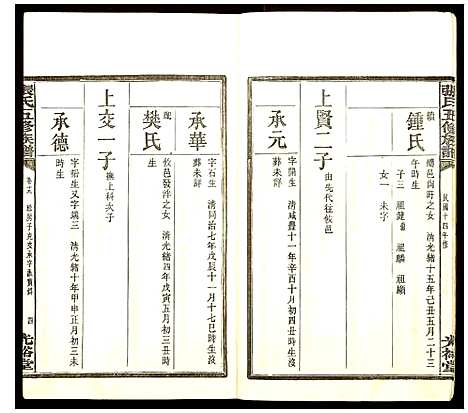 張氏五修族譜
民國十四年修
光裕堂
鍾氏
繼
攸邑尚許之女 清光緒十五年己丑五月二十三
午時生
子三 祖健 祖麟 祖順
女一 未字
上賢二子
由先代往攸邑
承元
字開生 清咸豐十一年辛酉十月初八日寅時生
葬未詳
承華
字石生 清同治七年戊辰十一月十七巳時生沒
葬未詳
樊氏
配
攸邑發許之女 清光緒四年戊寅五月初三丑時
生
上交一子
撫上科次子
承德
字裕生又字煥三 清光緒十年甲申正月初三未
時生
張氏五修族譜
四
光裕堂